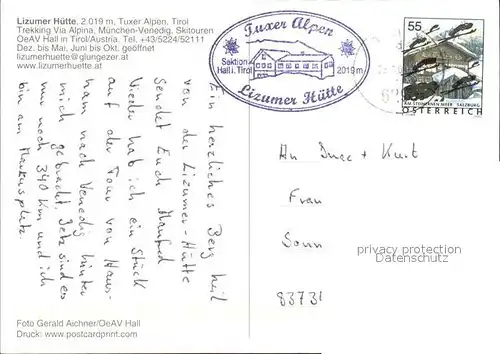 Lizumer Hütte, 2.019 m, Tuxer Alpen, Tirol
Trekking Via Alpina, München-Venedig, Skitouren
OeAV Hall in Tirol/Austria. Tel. +43/5224/52111
Dez. bis Mai, Juni bis Okt. geöffnet
lizumerhuette@glungezer.at
www.lizumerhuette.at
Tuxer Alpen
Sektion
Hall i. Tirol
2019m
Lizumer Hütte
55
AM STEINERNEN MEER SALZBURG
ÖSTERREICH
Ein herzliches Berg heil
von der Lizumer-Hütte
sendet Euch Manfred
Wieder hab ich ein Stück
auf der Tour von Haus-
ham nach Venedig hinter
mich gebracht. Jetz sind es
nur noch 340 Km und ich
bin am Markusplatz.
An + Kurt
Frau
Sonn
83731
privacy protection
service
Foto Gerald Aichner/OeAV Hall
Druck: www.postcardprint.com